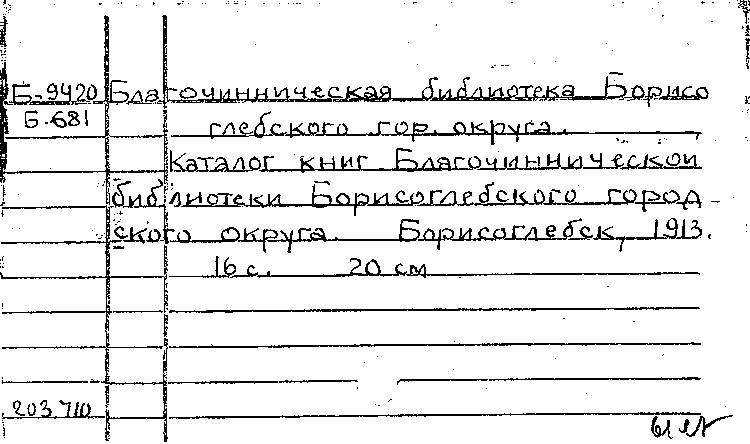 Б-9420 Благочинническая библиотека Борисо
Б-681 глебского гор. округа.
Каталог книг Благочиннической
библиотеки Борисоглебского город-
ского округа. Борисоглебск, 1913.
16 с. 20 см
203.710